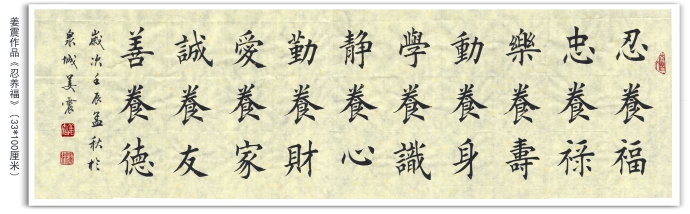 忍養福
忠養禄
樂養壽
動養身
學養識
静養心
勤養財
愛養家
誠養友
善養德
歲次壬辰孟秋於
泉城姜震
姜震作品《忍养福》（33*100厘米）